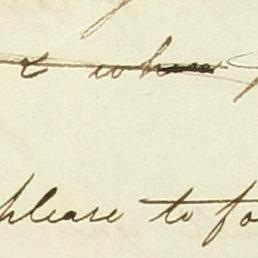 & when
please to fo